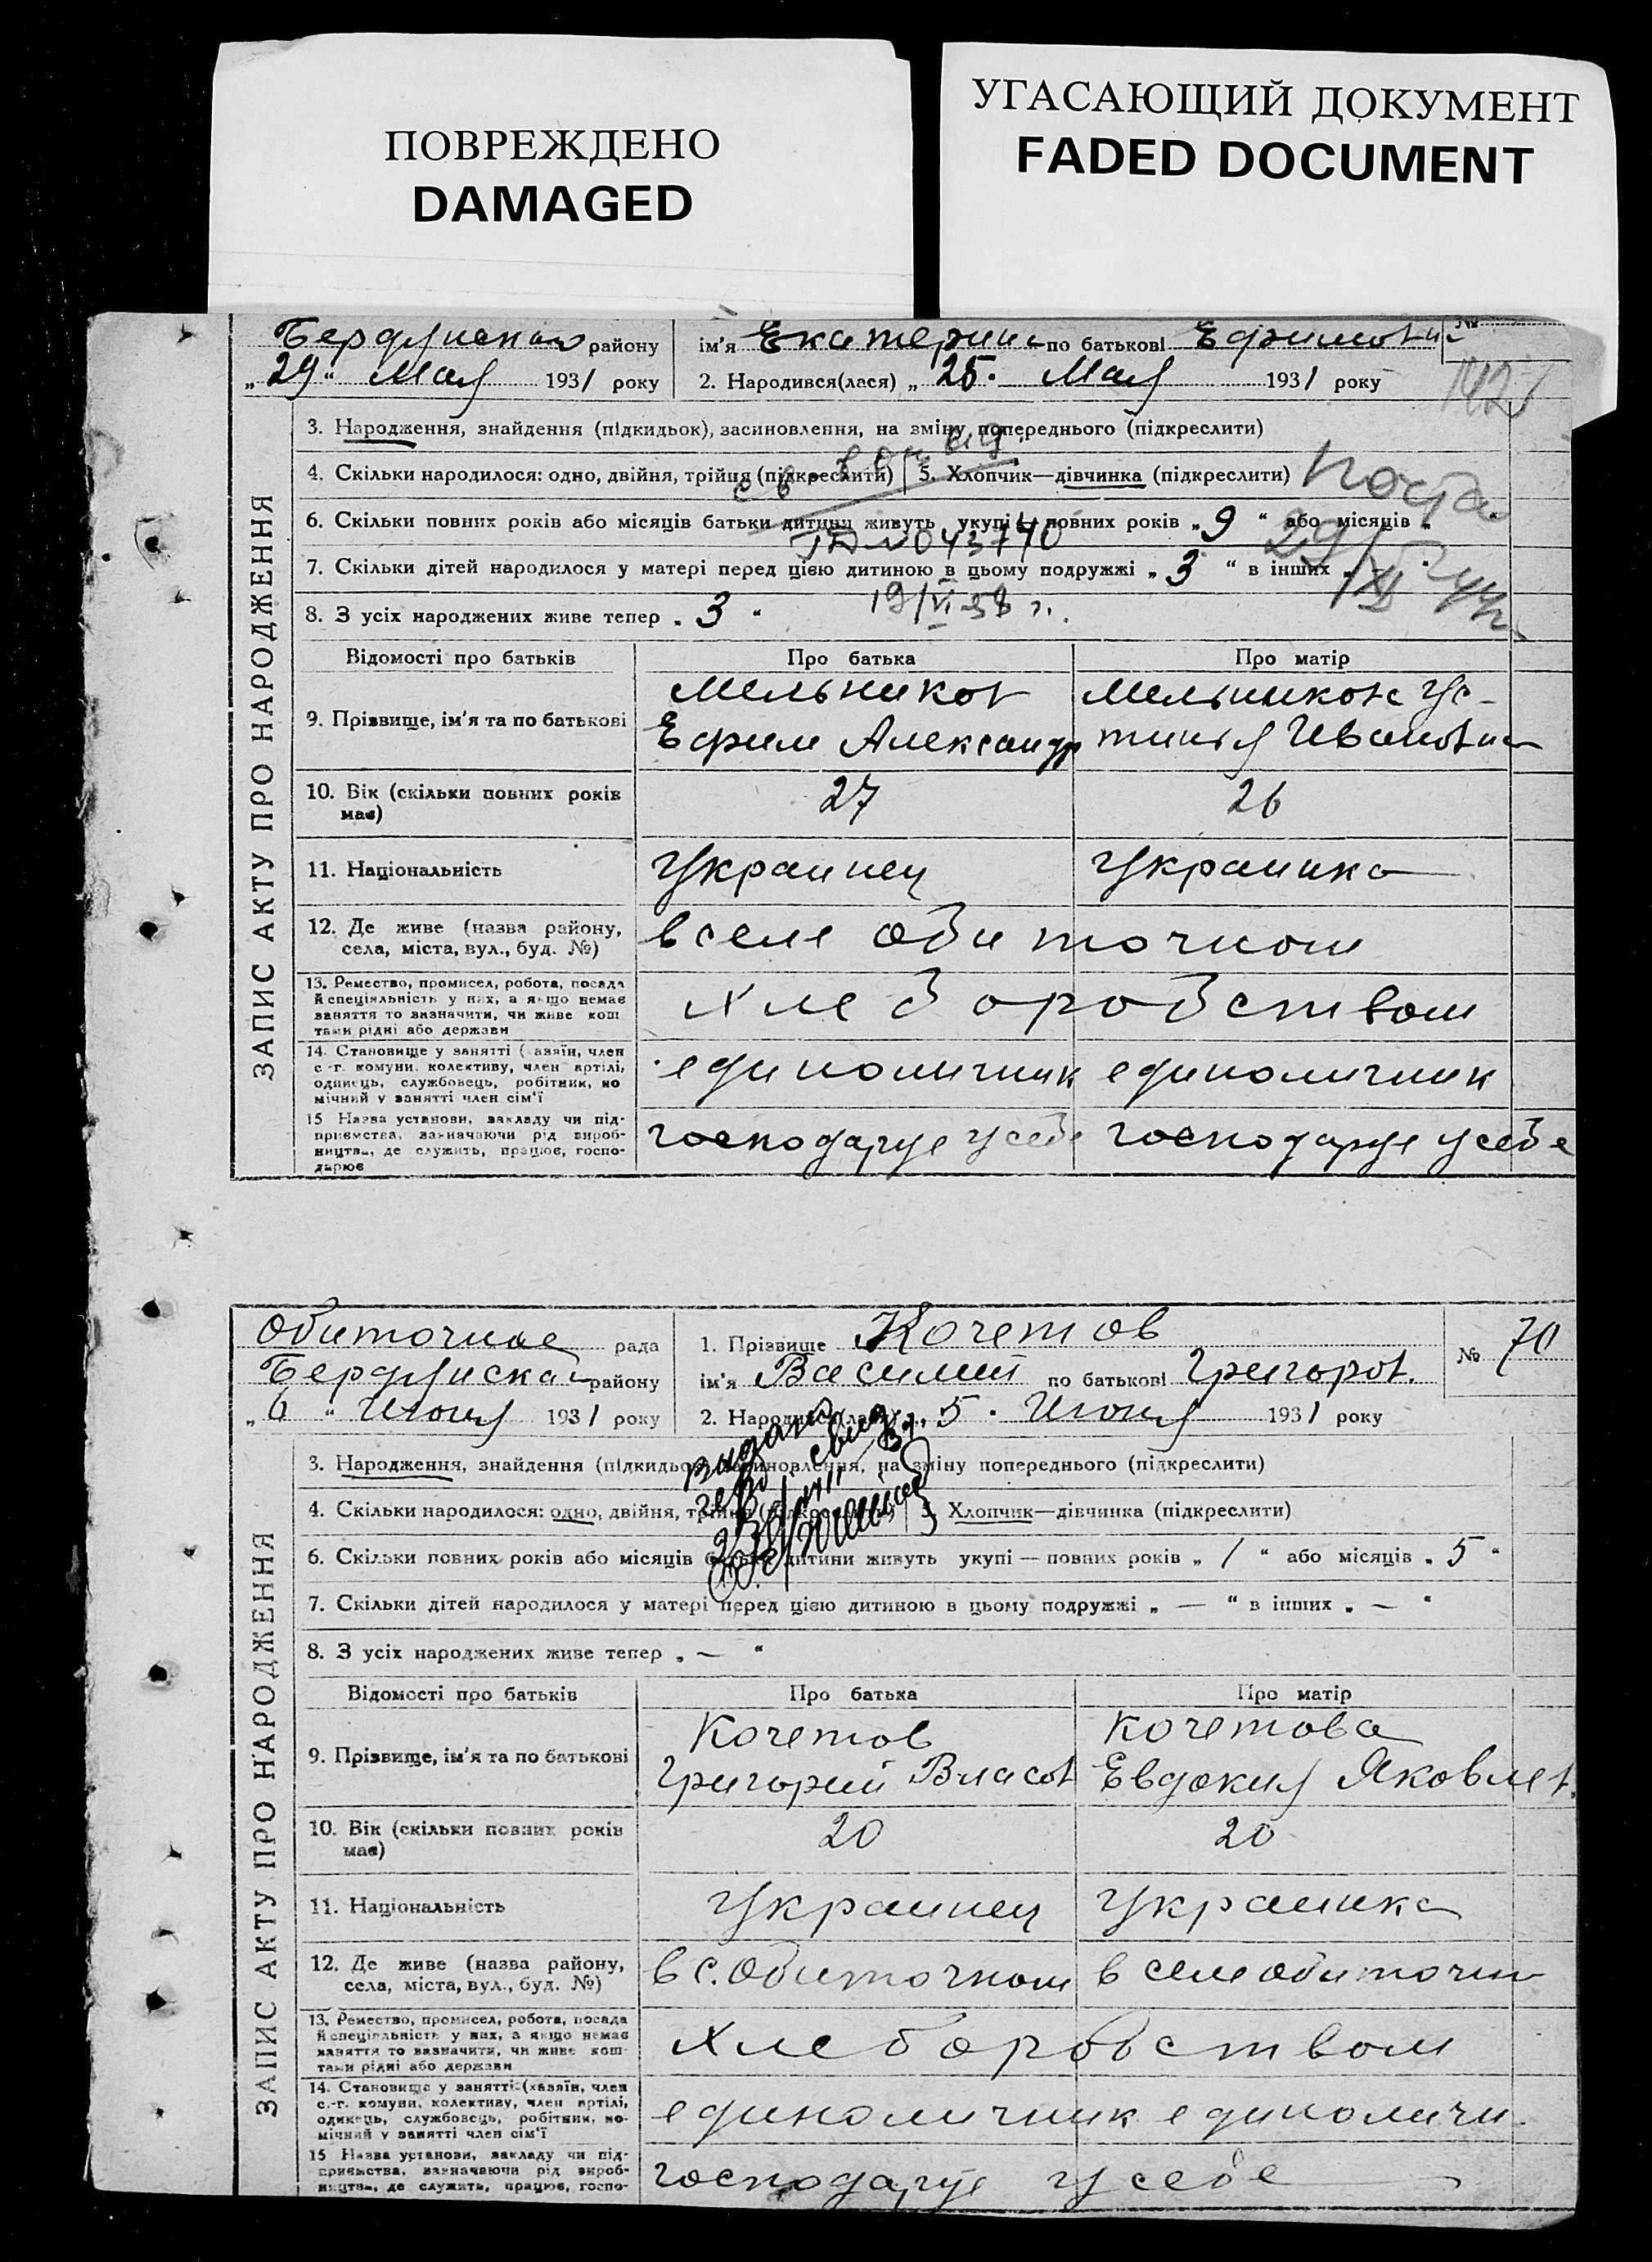 ПОВРЕЖДЕНО
DAMAGED
УГАСАЮЩИЙ ДОКУМЕНТ
FADED DOCUMENT
району
ім'я Екатерина по батькові Ефимовна
№
„29“ Мая 1931 року
2. Народився(лася) „25. Мая 1931 року
ЗАПИС АКТУ ПРО НАРОДЖЕННЯ
3. Народження, знайдення (підкидьок), засиновлення, на зміну попереднього (підкреслити)
4. Скільки народилося: одно, двійня, трійня (підкреслити) 5. Хлопчик—дівчинка (підкреслити)
6. Скільки повних років або місяців батьки дитини живуть укупі — повних років „9“ або місяців „ “
№043740
7. Скільки дітей народилося у матері перед цією дитиною в цьому подружжі „3“ в інших
19/VI 58 г.
8. З усіх народжених живе тепер „3“
Відомості про батьків
Про батька
Про матір
9. Прізвище, ім'я та по батькові
Мельников
Ефим Александр
Мельникова Ус-
тинья Ивановна
10. Вік (скільки повних років має)
27
26
11. Національність
Украинец
Украинка
12. Де живе (назва району, села, міста, вул., буд. №)
в селе Обиточном
13. Ремество, промисел, робота, посада
й спеціяльність у них, а якщо немає
заняття то визначити, чи живе кош
тами рідні або держави
Хлеборобством
14. Становище у занятті (хазяїн, член
с.-г. комуни, колективу, член артілі,
одинець, службовець, робітник, по
мічний у занятті член сім'ї
единоличник
единоличник
15 Назва установи, закладу чи під-
приємства, зазначаючи рід вироб-
ництва, де служить, працює, госпо-
дарює
господарує у себе
господарує у себе
Обиточное рада
1. Прізвище Кочетов
№ 70
району
ім'я Василий по батькові Григоров.
„6“ Июня 1931 року
2. Народився(лася) „5. Июня 1931 року
ЗАПИС АКТУ ПРО НАРОДЖЕННЯ
3. Народження, знайдення (підкидьок), засиновлення, на зміну попереднього (підкреслити)
4. Скільки народилося: одно, двійня, трійня (підкреслити) 5. Хлопчик—дівчинка (підкреслити)
6. Скільки повних років або місяців батьки дитини живуть укупі — повних років „1“ або місяців „5“
7. Скільки дітей народилося у матері перед цією дитиною в цьому подружжі „—“ в інших „—“
8. З усіх народжених живе тепер „—“
Відомості про батьків
Про батька
Про матір
9. Прізвище, ім'я та по батькові
Кочетов
Григорий Власов
Кочетова
Евдокия Яковлев.
10. Вік (скільки повних років має)
20
20
11. Національність
Украинец
Украинка
12. Де живе (назва району, села, міста, вул., буд. №)
в с. Обиточном
в селе Обиточн
13. Ремество, промисел, робота, посада
й спеціяльність у них, а якщо немає
заняття то визначити, чи живе кош
тами рідні або держави
Хлеборобством
14. Становище у занятті (хазяїн, член
с.-г. комуни, колективу, член артілі,
одинець, службовець, робітник, по-
мічний у занятті член сім'ї
единоличник
единоличн.
15 Назва установи, закладу чи під-
приємства, зазначаючи рід вироб-
ництва, де служить, працює, госпо-
господарує у себе